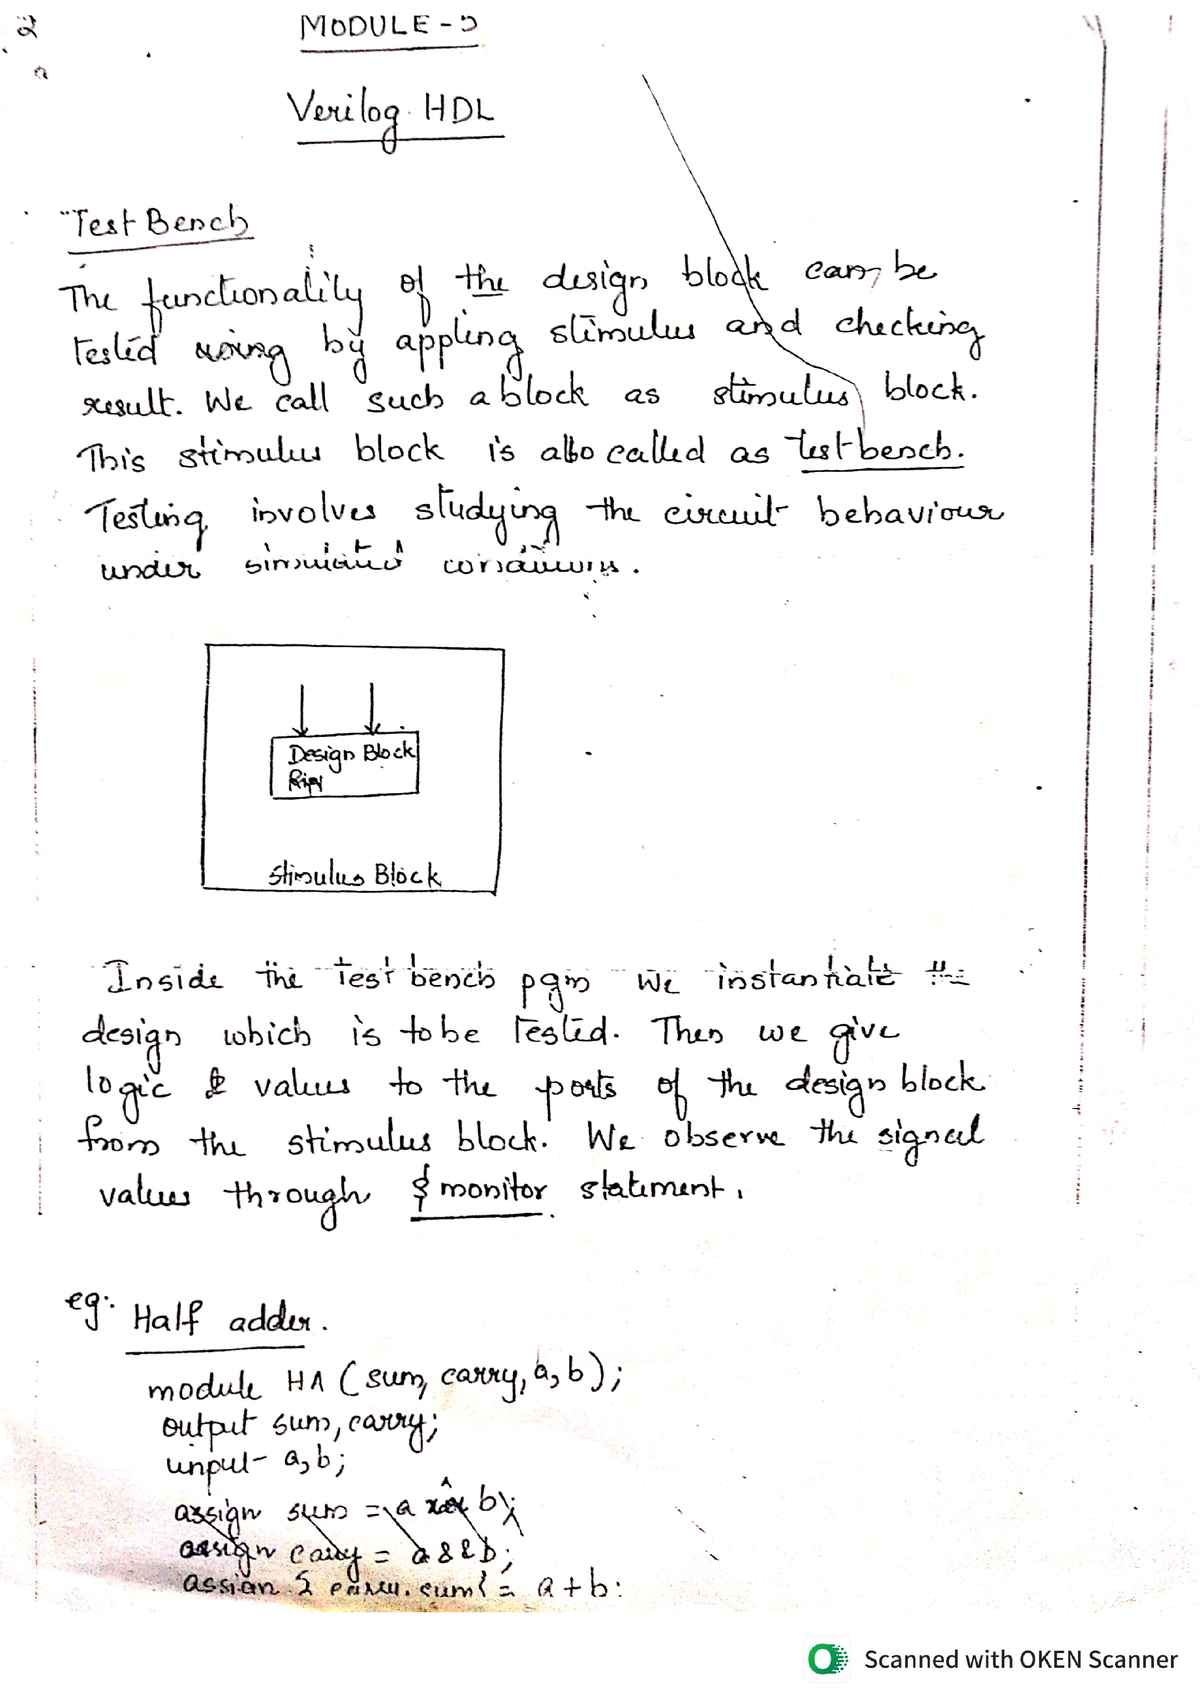 2
MODULE - 5
Verilog HDL
Test Bench
The functionality of the design block can be
tested by appling stimulus and checking
result. We call such a block as stimulus block.
This stimulus block is also called as test bench.
Testing involves studying the circuit behaviour
under simulated conditions.
Design Block
Stimulus Block
Inside the test bench pgm we instantiate the
design which is to be tested. Then we give
logic values to the ports of the design block
from the stimulus block. We observe the signal
values through $monitor statement.
eg: Half adder.
module HA (sum, carry, a, b);
output sum, carry;
input a, b;
assign sum = a ^ b;
assign carry = a && b;
assign { carry, sum } = a + b;
Scanned with OKEN Scanner